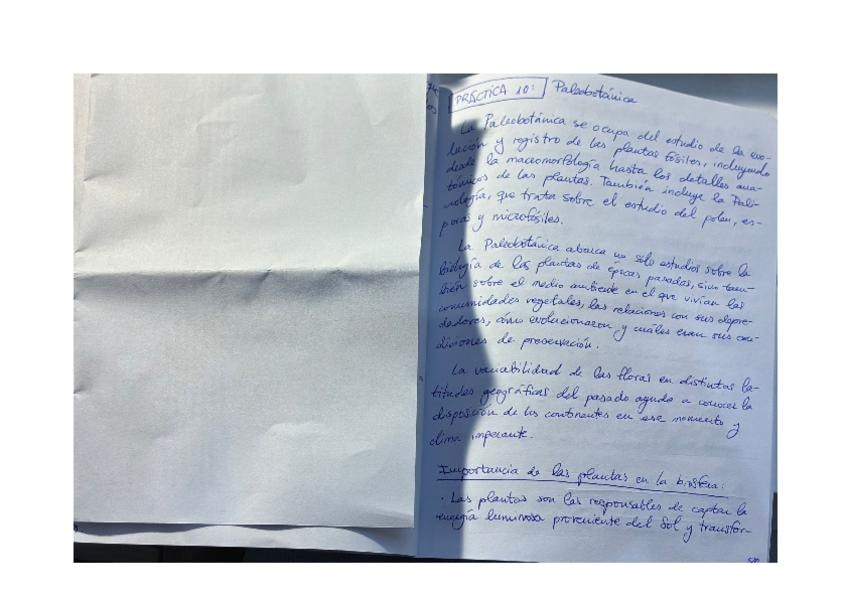 PRÁCTICA 10: Paleobotánica
La Paleobotánica se ocupa del estudio de la evo-
lución y registro de las plantas fósiles, incluyendo
desde la macromorfología hasta los detalles ana-
tómicos de las plantas. También incluye la Pali-
nología, que trata sobre el estudio del polen, es-
poras y microfósiles.
La Paleobotánica abarca no sólo estudios sobre la
biología de las plantas de épocas pasadas, sino tam-
bién sobre el medio ambiente en el que vivían las
comunidades vegetales, las relaciones con sus depre-
dadores, cómo evolucionaron y cuáles eran sus con-
diciones de preservación.
La variabilidad de las floras en distintas la-
titudes geográficas del pasado ayuda a conocer la
disposición de los continentes en ese momento y
clima imperante.
Importancia de las plantas en la biosfera:
· Las plantas son las responsables de captar la
energía luminosa proveniente del Sol y transfor-